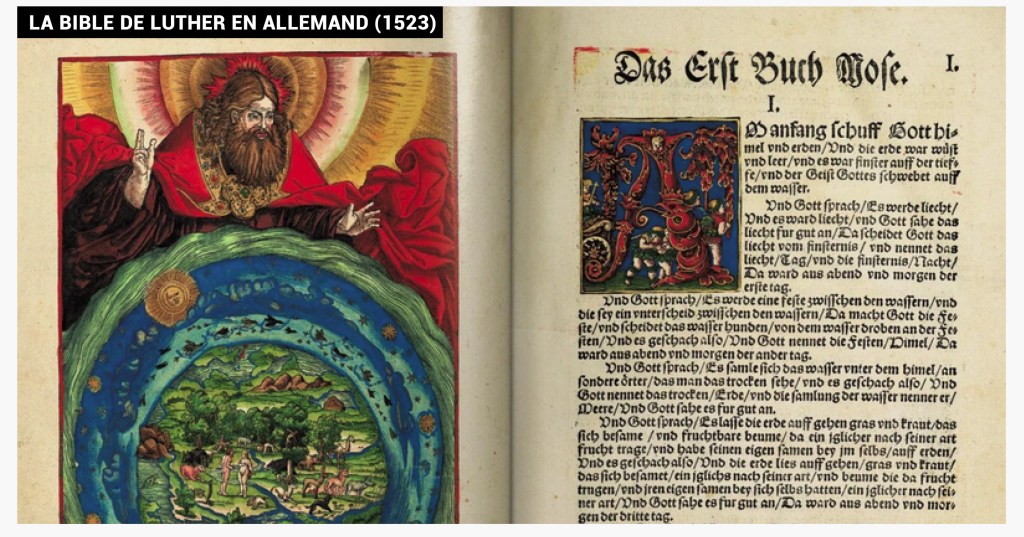 LA BIBLE DE LUTHER EN ALLEMAND (1523)
Das Erst Buch Mose. I.
I.
AM anfang schuff Gott hi⸗
mel vnd erden/Vnd die erde war wüst
vnd leer/vnd es war finster auff der tief⸗
fe/vnd der Geist Gottes schwebet auff
dem wasser.
Vnd Gott sprach/Es werde liecht/
Vnd es ward liecht/vnd Gott sahe das
liecht fur gut an/Da scheidet Gott das
liecht vom finsternis/ vnd nennet das
liecht/Tag/vnd die finsternis/Nacht/
Da ward aus abend vnd morgen der
erste tag.
Vnd Gott sprach/Es werde eine feste zwisschen den wassern/vnd
die sey ein vnterscheid zwisschen den wassern/Da macht Gott die Fe⸗
ste/vnd scheidet das wasser hunden/von dem wasser droben an der Fe⸗
sten/Vnd es geschach also/Vnd Gott nennet die Festen/Himel/Da
ward aus abend vnd morgen der ander tag.
Vnd Gott sprach/Es samle sich das wasser vnter dem himel/an
sondere örter/das man das trocken sehe/vnd es geschach also/ Vnd
Gott nennet das trocken/Erde/vnd die samlung der wasser nennet er/
Meere/Vnd Gott sahe es fur gut an.
Vnd Gott sprach/Es lasse die erde auff gehen gras vnd kraut/das
sich besame / vnd fruchtbare beume/da ein jglicher nach seiner art
frucht trage/vnd habe seinen eigen samen bey jm selbs/auff erden/
Vnd es geschach also/Vnd die erde lies auff gehen/gras vnd kraut/
das sich besamet/ein jglichs nach seiner art/vnd beume die da frucht
trugen/vnd jren eigen samen bey sich selbs hatten/ein jglicher nach sei⸗
ner art/Vnd Gott sahe es fur gut an/Da ward aus abend vnd mor⸗
gen der dritte tag.